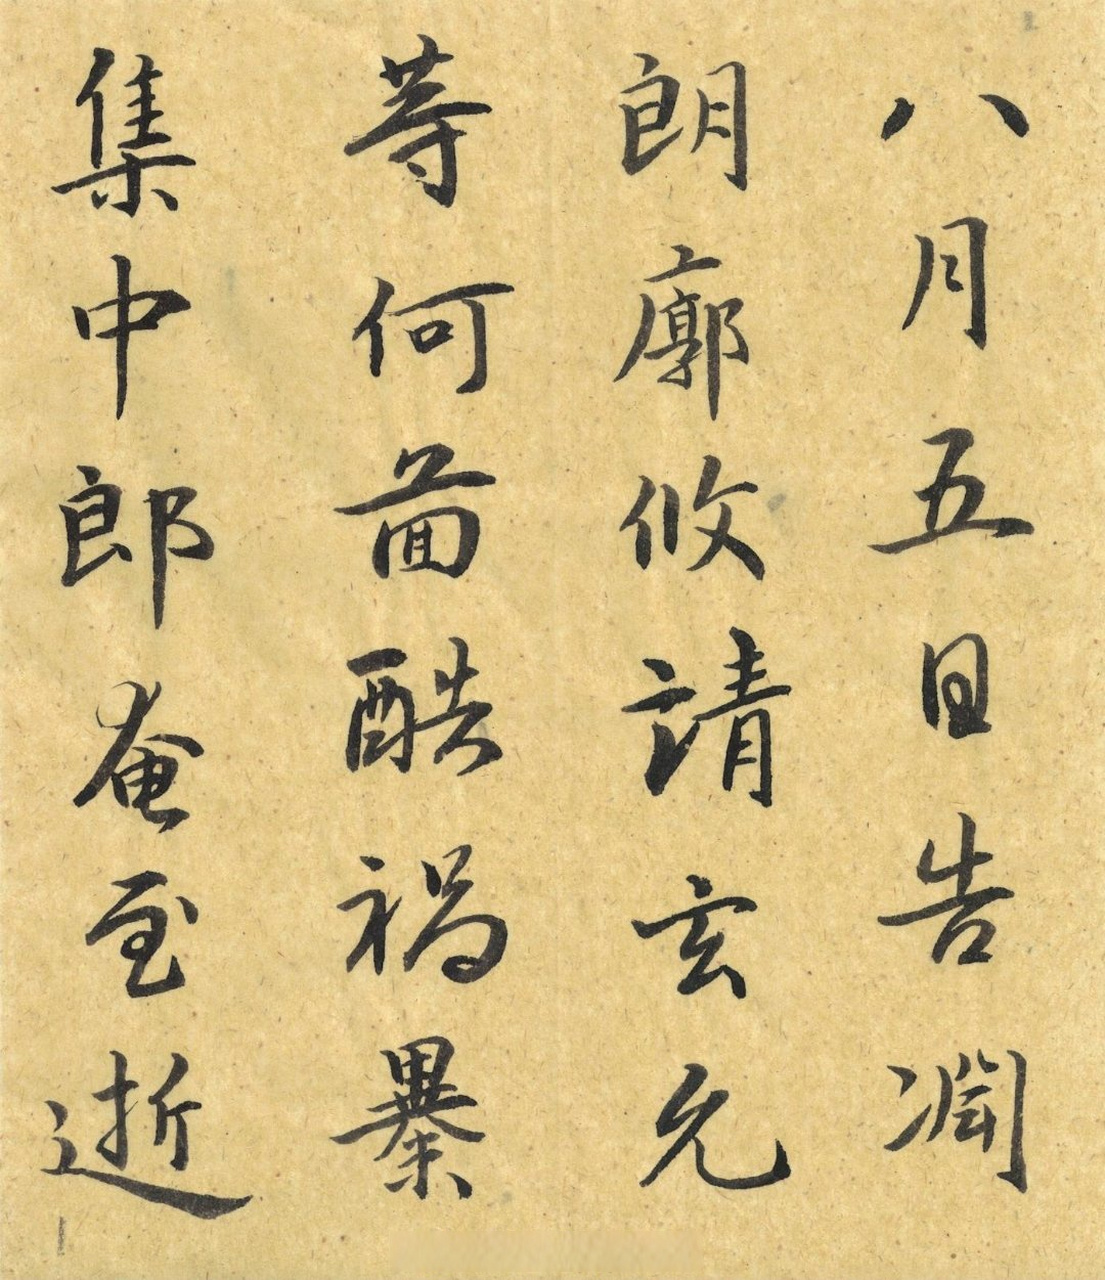 八月五日告渊
朗廓攸請玄允
等何啚酷禍暴
集中郎奄至逝